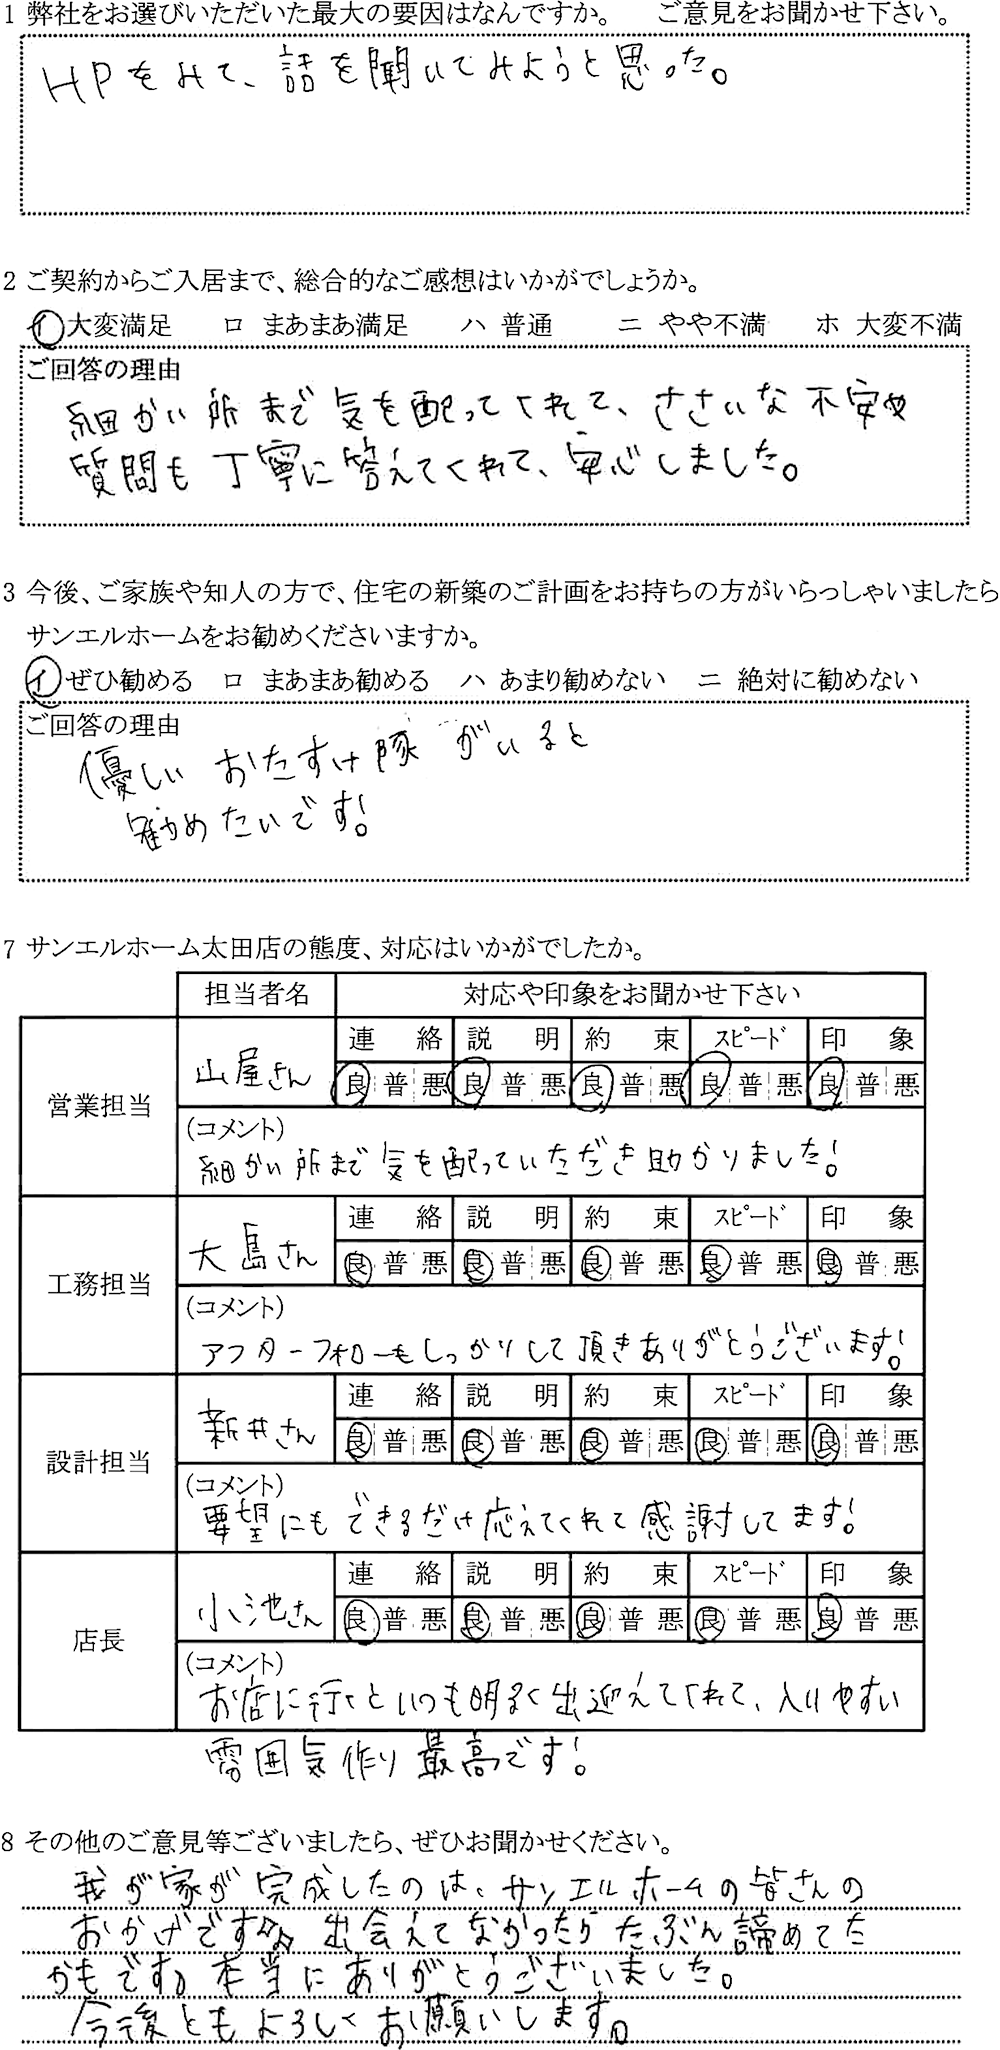 1 弊社をお選びいただいた最大の要因はなんですか。 ご意見をお聞かせ下さい。
HPをみて、話を聞いてみようと思った。
2 ご契約からご入居まで、総合的なご感想はいかがでしょうか。
イ 大変満足 ロ まあまあ満足 ハ 普通 ニ やや不満 ホ 大変不満
ご回答の理由
細かい所まで気を配ってくれて、ささいな不安や
質問も丁寧に答えてくれて、安心しました。
3 今後、ご家族や知人の方で、住宅の新築のご計画をお持ちの方がいらっしゃいましたら
サンエルホームをお勧めくださいますか。
イ ぜひ勧める ロ まあまあ勧める ハ あまり勧めない ニ 絶対に勧めない
ご回答の理由
優しいおたすけ隊がいると
勧めたいです!
7 サンエルホーム太田店の態度、対応はいかがでしたか。
担当者名 対応や印象をお聞かせ下さい
営業担当 山屋さん 連絡 説明 約束 スピード 印象
良 普 悪 良 普 悪 良 普 悪 良 普 悪 良 普 悪
(コメント)
細かい所まで気を配っていただき助かりました!
工務担当 大島さん 連絡 説明 約束 スピード 印象
良 普 悪 良 普 悪 良 普 悪 良 普 悪 良 普 悪
(コメント)
アフターフォローもしっかりして頂きありがとうございます!
設計担当 新井さん 連絡 説明 約束 スピード 印象
良 普 悪 良 普 悪 良 普 悪 良 普 悪 良 普 悪
(コメント)
要望にもできるだけ応えてくれて感謝してます!
店長 小池さん 連絡 説明 約束 スピード 印象
良 普 悪 良 普 悪 良 普 悪 良 普 悪 良 普 悪
(コメント)
お店に行くといつも明るく出迎えてくれて、入りやすい
雰囲気作り最高です!
8 その他のご意見等ございましたら、ぜひお聞かせください。
我が家が完成したのは、サンエルホームの皆さんの
おかげです。出会えてなかったらたぶん諦めてた
かもです。本当にありがとうございました。
今後ともよろしくお願いします。